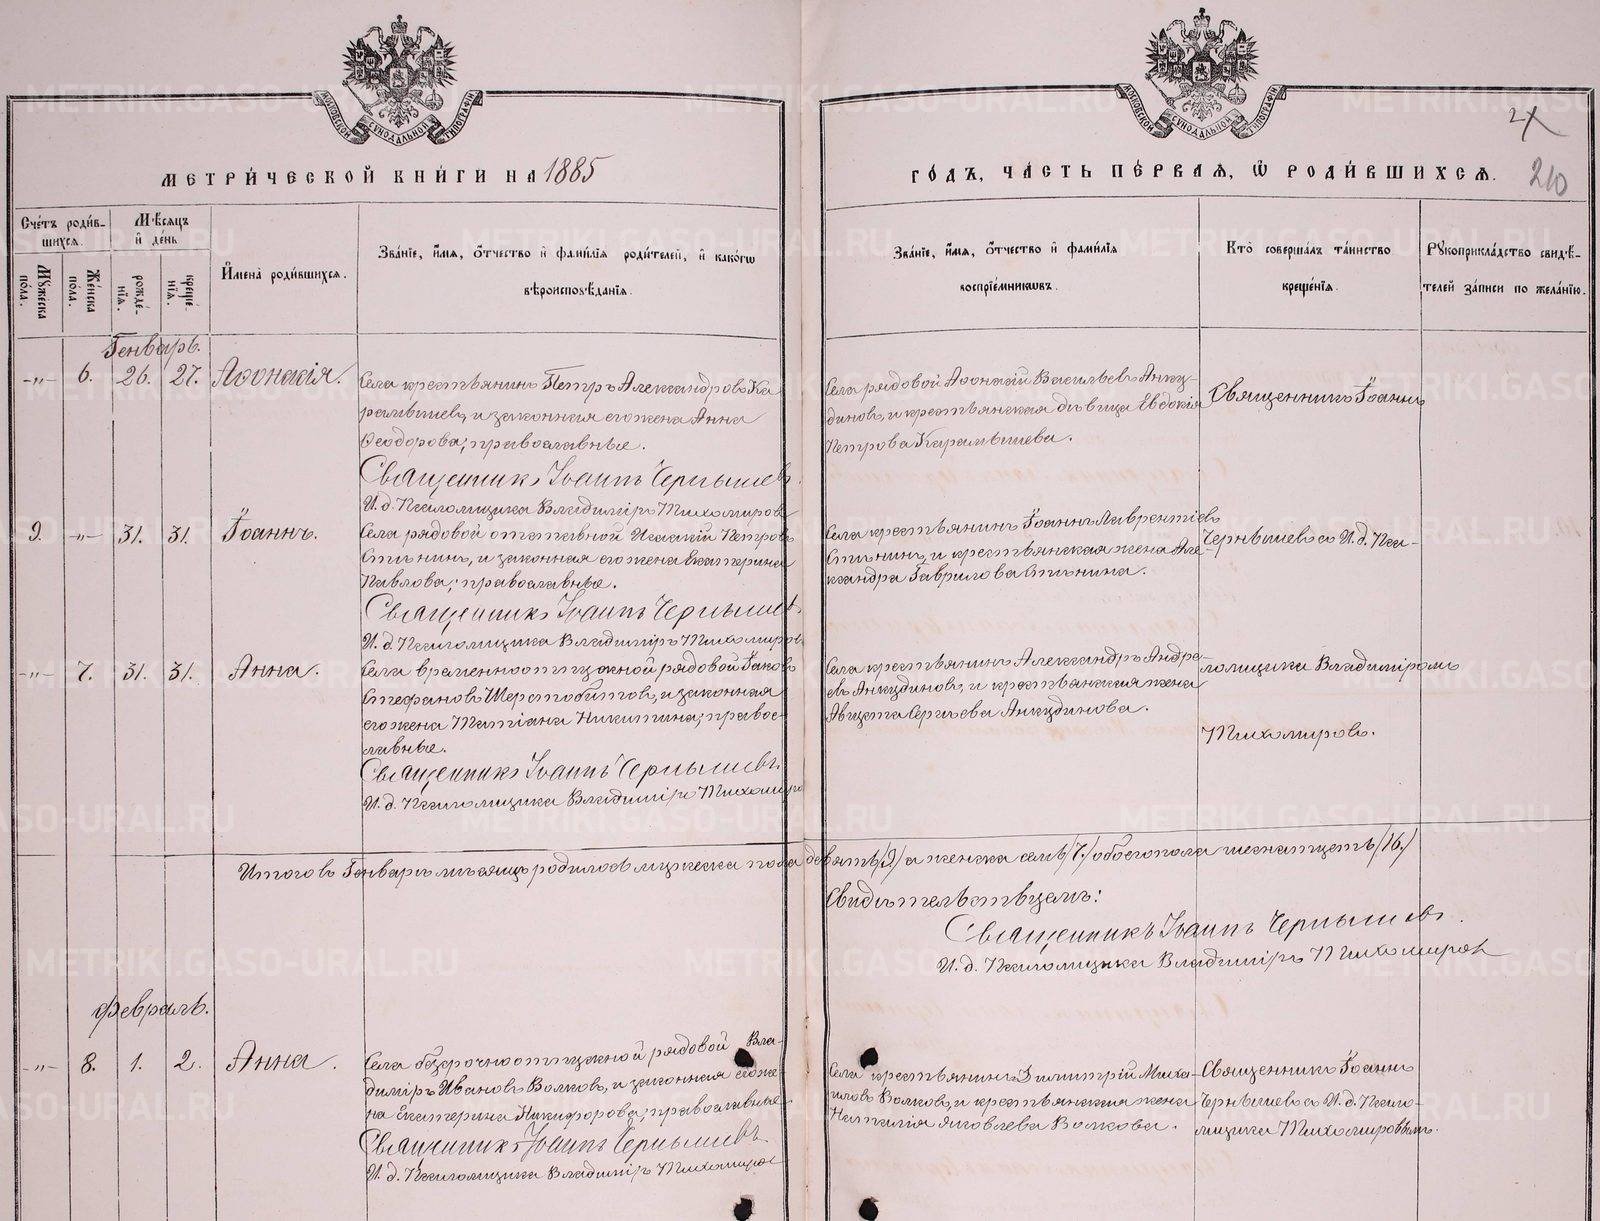 МОСКОВСКОЙ СѴНОДАЛЬНОЙ ТИПОГРАФІИ
МОСКОВСКОЙ СѴНОДАЛЬНОЙ ТИПОГРАФІИ
МЕТРИ́ЧЕСКОЙ КНИ́ГИ НА 1885
ГО́ДЪ, ЧА́СТЬ ПЕ́РВАЯ, Ѡ РОДИ́ВШИХСЯ.
210
Сче́тъ роди́в-
шихся.
Мѣ́сяцъ
и҆ де́нь
Мꙋ́жеска по́ла.
Же́нска по́ла.
рожде́-
нїя.
креще́-
нїя.
И҆мена̀ роди́вшихся.
Зва́нїе, и҆́мя, ѻ҆́тчество и҆ фами́лїя роди́телей, и҆ како́гѡ
вѣроисповѣ́данїя.
Зва́нїе, и҆́мя, ѻ҆́тчество и҆ фами́лїя
воспрїе́мникѡвъ.
Кто̀ соверша́лъ та́инство
креще́нїя.
Рꙋкоприкла́дство свидѣ́-
телей за́писи по жела́нїю.
Генварь.
-„- 6. 26. 27. Аѳонасія.
Села крестьянинъ Петръ Александровъ Ка-
рамышевъ, и законная его жена Анна
Ѳеодорова; православные.
Священникъ Іоаннъ Чернышевъ
И. д. Псаломщика Владиміръ Тихомировъ
Села рядовой Аѳонасій Васильевъ Анку-
диновъ, и крестьянская дѣвица Евдокія
Петрова Карамышева.
Священникъ Іоаннъ
9. -„- 31. 31. Іоаннъ.
Села рядовой отставной Исакій Петровъ
Стѣнинъ, и законная его жена Екатерина
Павлова; православные.
Священникъ Іоаннъ Чернышевъ
И. д. Псаломщика Владиміръ Тихомировъ
Села крестьянинъ Іоаннъ Лаврентіевъ
Стѣнинъ, и крестьянская жена Але-
ксандра Гаврилова Стѣнина.
Чернышевъ съ И. д. Пса-
-„- 7. 31. 31. Анна.
Села временноотпускной рядовой Іаковъ
Стефановъ Шерстобитовъ, и законная
его жена Татіана Никитина; правос-
лавные.
Священникъ Іоаннъ Чернышевъ.
И. д. Псаломщика Владиміръ Тихомиров
Села крестьянинъ Александръ Андре-
евъ Анкудиновъ, и крестьянская жена
Сергіева Анкудинова.
ломщика Владиміромъ
Тихомировъ.
Итого въ Генварѣ мѣсяцѣ родилось мужеска пола девять /9/ а женска семь /7./ обоего пола шеснатцеть /16./
Свидѣтельствуемъ:
Священникъ Іоаннъ Чернышевъ.
И. д. Псаломщика Владиміръ Тихомировъ
Февраль.
-„- 8. 1. 2. Анна.
Села безсрочноотпускной рядовой Вла-
димиръ Ивановъ Волковъ, и законная его же-
на Екатерина Никифорова; православные
Священникъ Іоаннъ Чернышевъ.
И. д. Псаломщика Владиміръ Тихомиров
Села крестьянинъ Димитрій Миха-
иловъ Волковъ, и крестьянская жена
Наталія Яковлева Волкова.
Священникъ Іоаннъ
Чернышевъ съ И. д. Псало-
мщика Тихомировымъ.
METRIKI.GASO-URAL.RU